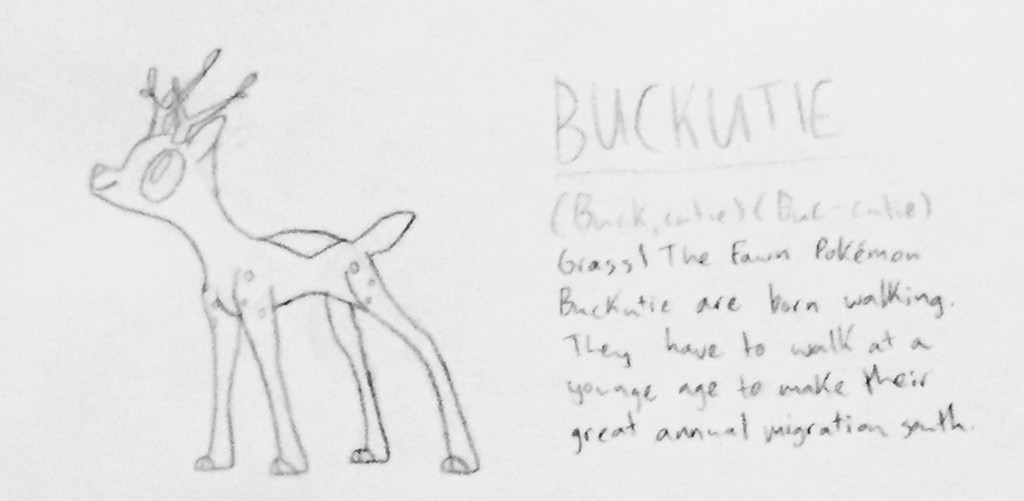 BUCKUTIE
(Buck, cutie) (Buc-cutie)
Grass| The Fawn Pokémon
Buckutie are born walking.
They have to walk at a
younge age to make their
great annual migration south.